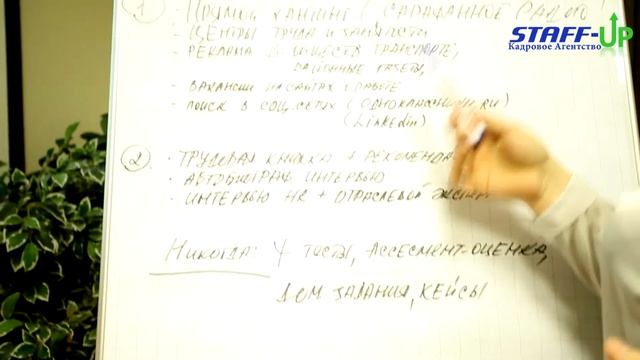 STAFF-UP
Кадровое Агентство
1 - ПРЯМОЙ ХАНТИНГ (САРАФАННОЕ РАДИО)
- ЦЕНТРЫ ТРУДА И ЗАНЯТОСТИ
- РЕКЛАМА В ОБЩЕСТВ ТРАНСПОРТЕ,
РАЙОННЫЕ ГАЗЕТЫ,
- ВАКАНСИИ НА САЙТАХ О РАБОТЕ
- ПОИСК В СОЦ.СЕТЯХ (ОДНОКЛАССНИКИ.RU)
(Linkedin)
2 · ТРУДОВАЯ КНИЖКА + РЕКОМЕНДА
· АВТОБИОГРАФ ИНТЕРВЬЮ
· ИНТЕРВЬЮ HR + ОТРАСЛЕВОЙ ЭКСПЕР
НИКОГДА: ТЕСТЫ, АССЕСМЕНТ-ОЦЕНКА,
ДОМ ЗАДАНИЯ, КЕЙСЫ